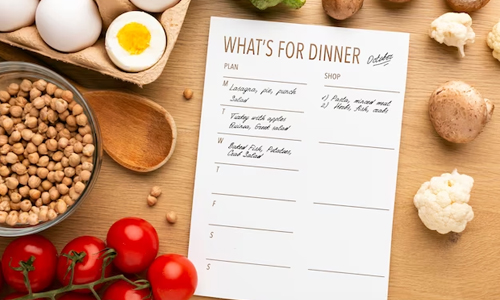 WHAT'S FOR DINNER October
PLAN
SHOP
M Lasagna, pie, punch
Salad
T Turkey with apples
Quinoa, Greek salad
W Baked Fish, Potatoes,
Salad
T
F
S
S
1) Pasta, minced meat
2) Herbs, fish,